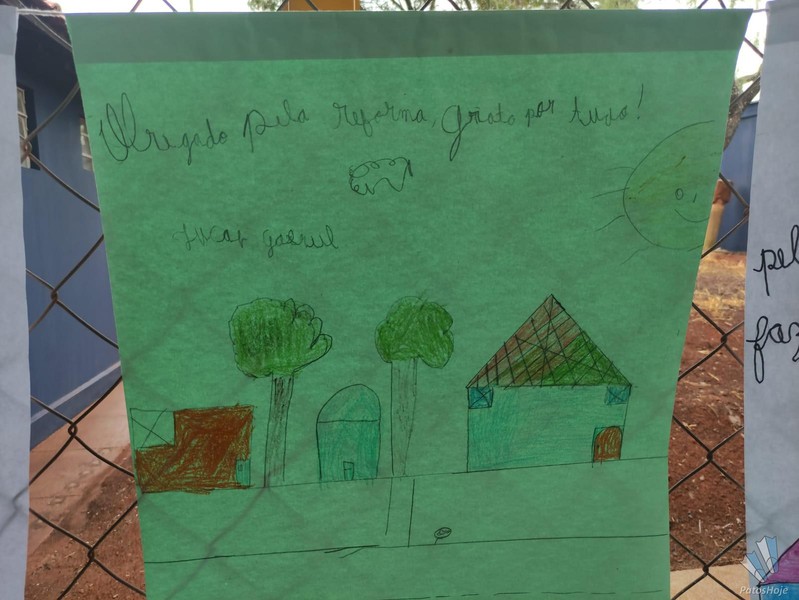 Obrigado pela reforma, grato por tudo!
gabriel
pel
faz
PatosHoje